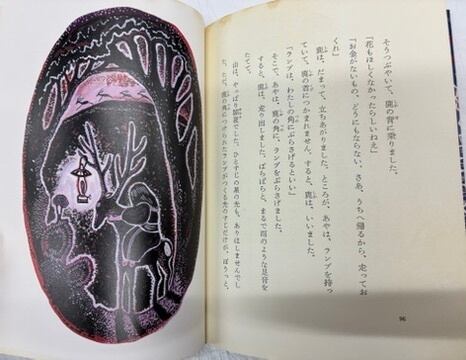 そうつぶやいて、鹿の背に乗りました。
「花もほしくなかったらしいねえ」
「お金がないもの、どうにもならない。さあ、うちへ帰るから、走ってお
くれ」
鹿は、だまって、立ちあがりました。ところが、あやは、ランプを持っ
ていて、鹿の首につかまれません。すると、鹿は、いいました。
「ランプは、わたしの角にぶらさげるといい」
そこで、あやは、鹿の角に、ランプをぶらさげました。
すると、鹿は、走り出しました。ぱらぱらと、まるで雨のような足音を
たてて。
山は、やっぱり暗闇でした。ひとすじの星の光も、ありはしませんでし
た。ただ、鹿の角につけられたランプがつくる光のすじだけが、ぼうっと、
96